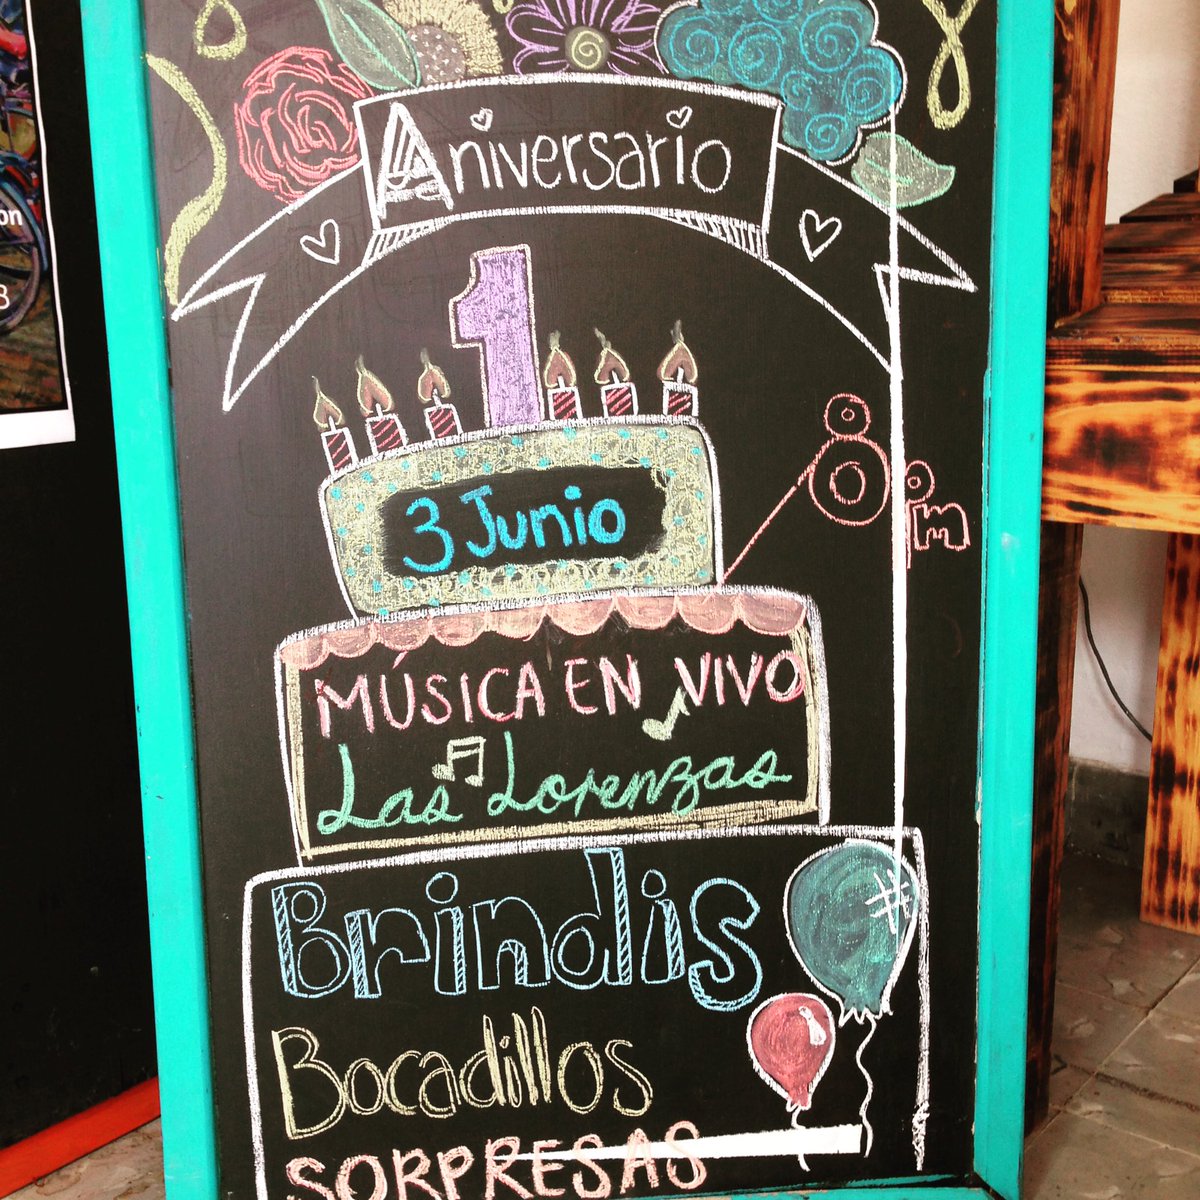 Aniversario
1
3 Junio
8pm
MÚSICA EN VIVO
Las Lorenzas
Brindis
Bocadillos
SORPRESAS
on
3